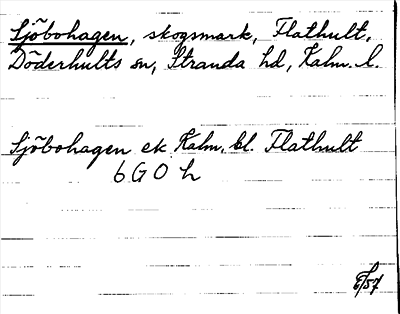 Sjöbohagen, skogsmark, Flathult,
Döderhults sn, Stranda hd, Kalm. l.
Sjöbohagen ek. Kalm. bl. Flathult
6G0h